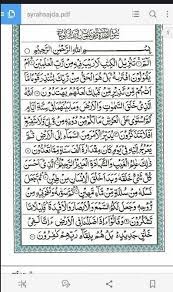 syrahsajda.pdf
بِسْمِ اللهِ الرَّحْمٰنِ الرَّحِيْمِ
الٓمّٓ تَنْزِيْلُ الْكِتٰبِ لَا رَيْبَ فِيْهِ مِنْ رَّبِّ الْعٰلَمِيْنَ اَمْ
يَقُوْلُوْنَ افْتَرٰىهُ بَلْ هُوَ الْحَقُّ مِنْ رَّبِّكَ لِتُنْذِرَ قَوْمًا مَّآ
اَتٰىهُمْ مِّنْ نَّذِيْرٍ مِّنْ قَبْلِكَ لَعَلَّهُمْ يَهْتَدُوْنَ اَللهُ
الَّذِيْ خَلَقَ السَّمٰوٰتِ وَالْاَرْضَ وَمَا بَيْنَهُمَا فِيْ سِتَّةِ اَيَّامٍ
ثُمَّ اسْتَوٰى عَلَى الْعَرْشِ مَا لَكُمْ مِّنْ دُوْنِهٖ مِنْ وَّلِيٍّ وَّلَا شَفِيْعٍ
اَفَلَا تَتَذَكَّرُوْنَ يُدَبِّرُ الْاَمْرَ مِنَ السَّمَآءِ اِلَى الْاَرْضِ ثُمَّ
يَعْرُجُ اِلَيْهِ فِيْ يَوْمٍ كَانَ مِقْدَارُهٗٓ اَلْفَ سَنَةٍ مِّمَّا تَعُدُّوْنَ
ذٰلِكَ عٰلِمُ الْغَيْبِ وَالشَّهَادَةِ الْعَزِيْزُ الرَّحِيْمُ الَّذِيْٓ اَحْسَنَ
كُلَّ شَيْءٍ خَلَقَهٗ وَبَدَاَ خَلْقَ الْاِنْسَانِ مِنْ طِيْنٍ ثُمَّ جَعَلَ
نَسْلَهٗ مِنْ سُلٰلَةٍ مِّنْ مَّآءٍ مَّهِيْنٍ ثُمَّ سَوّٰىهُ وَنَفَخَ فِيْهِ مِنْ
رُّوْحِهٖ وَجَعَلَ لَكُمُ السَّمْعَ وَالْاَبْصَارَ وَالْاَفْئِدَةَ قَلِيْلًا مَّا
تَشْكُرُوْنَ وَقَالُوْٓا ءَاِذَا ضَلَلْنَا فِي الْاَرْضِ ءَاِنَّا لَفِيْ
خَلْقٍ جَدِيْدٍ بَلْ هُمْ بِلِقَآءِ رَبِّهِمْ كٰفِرُوْنَ